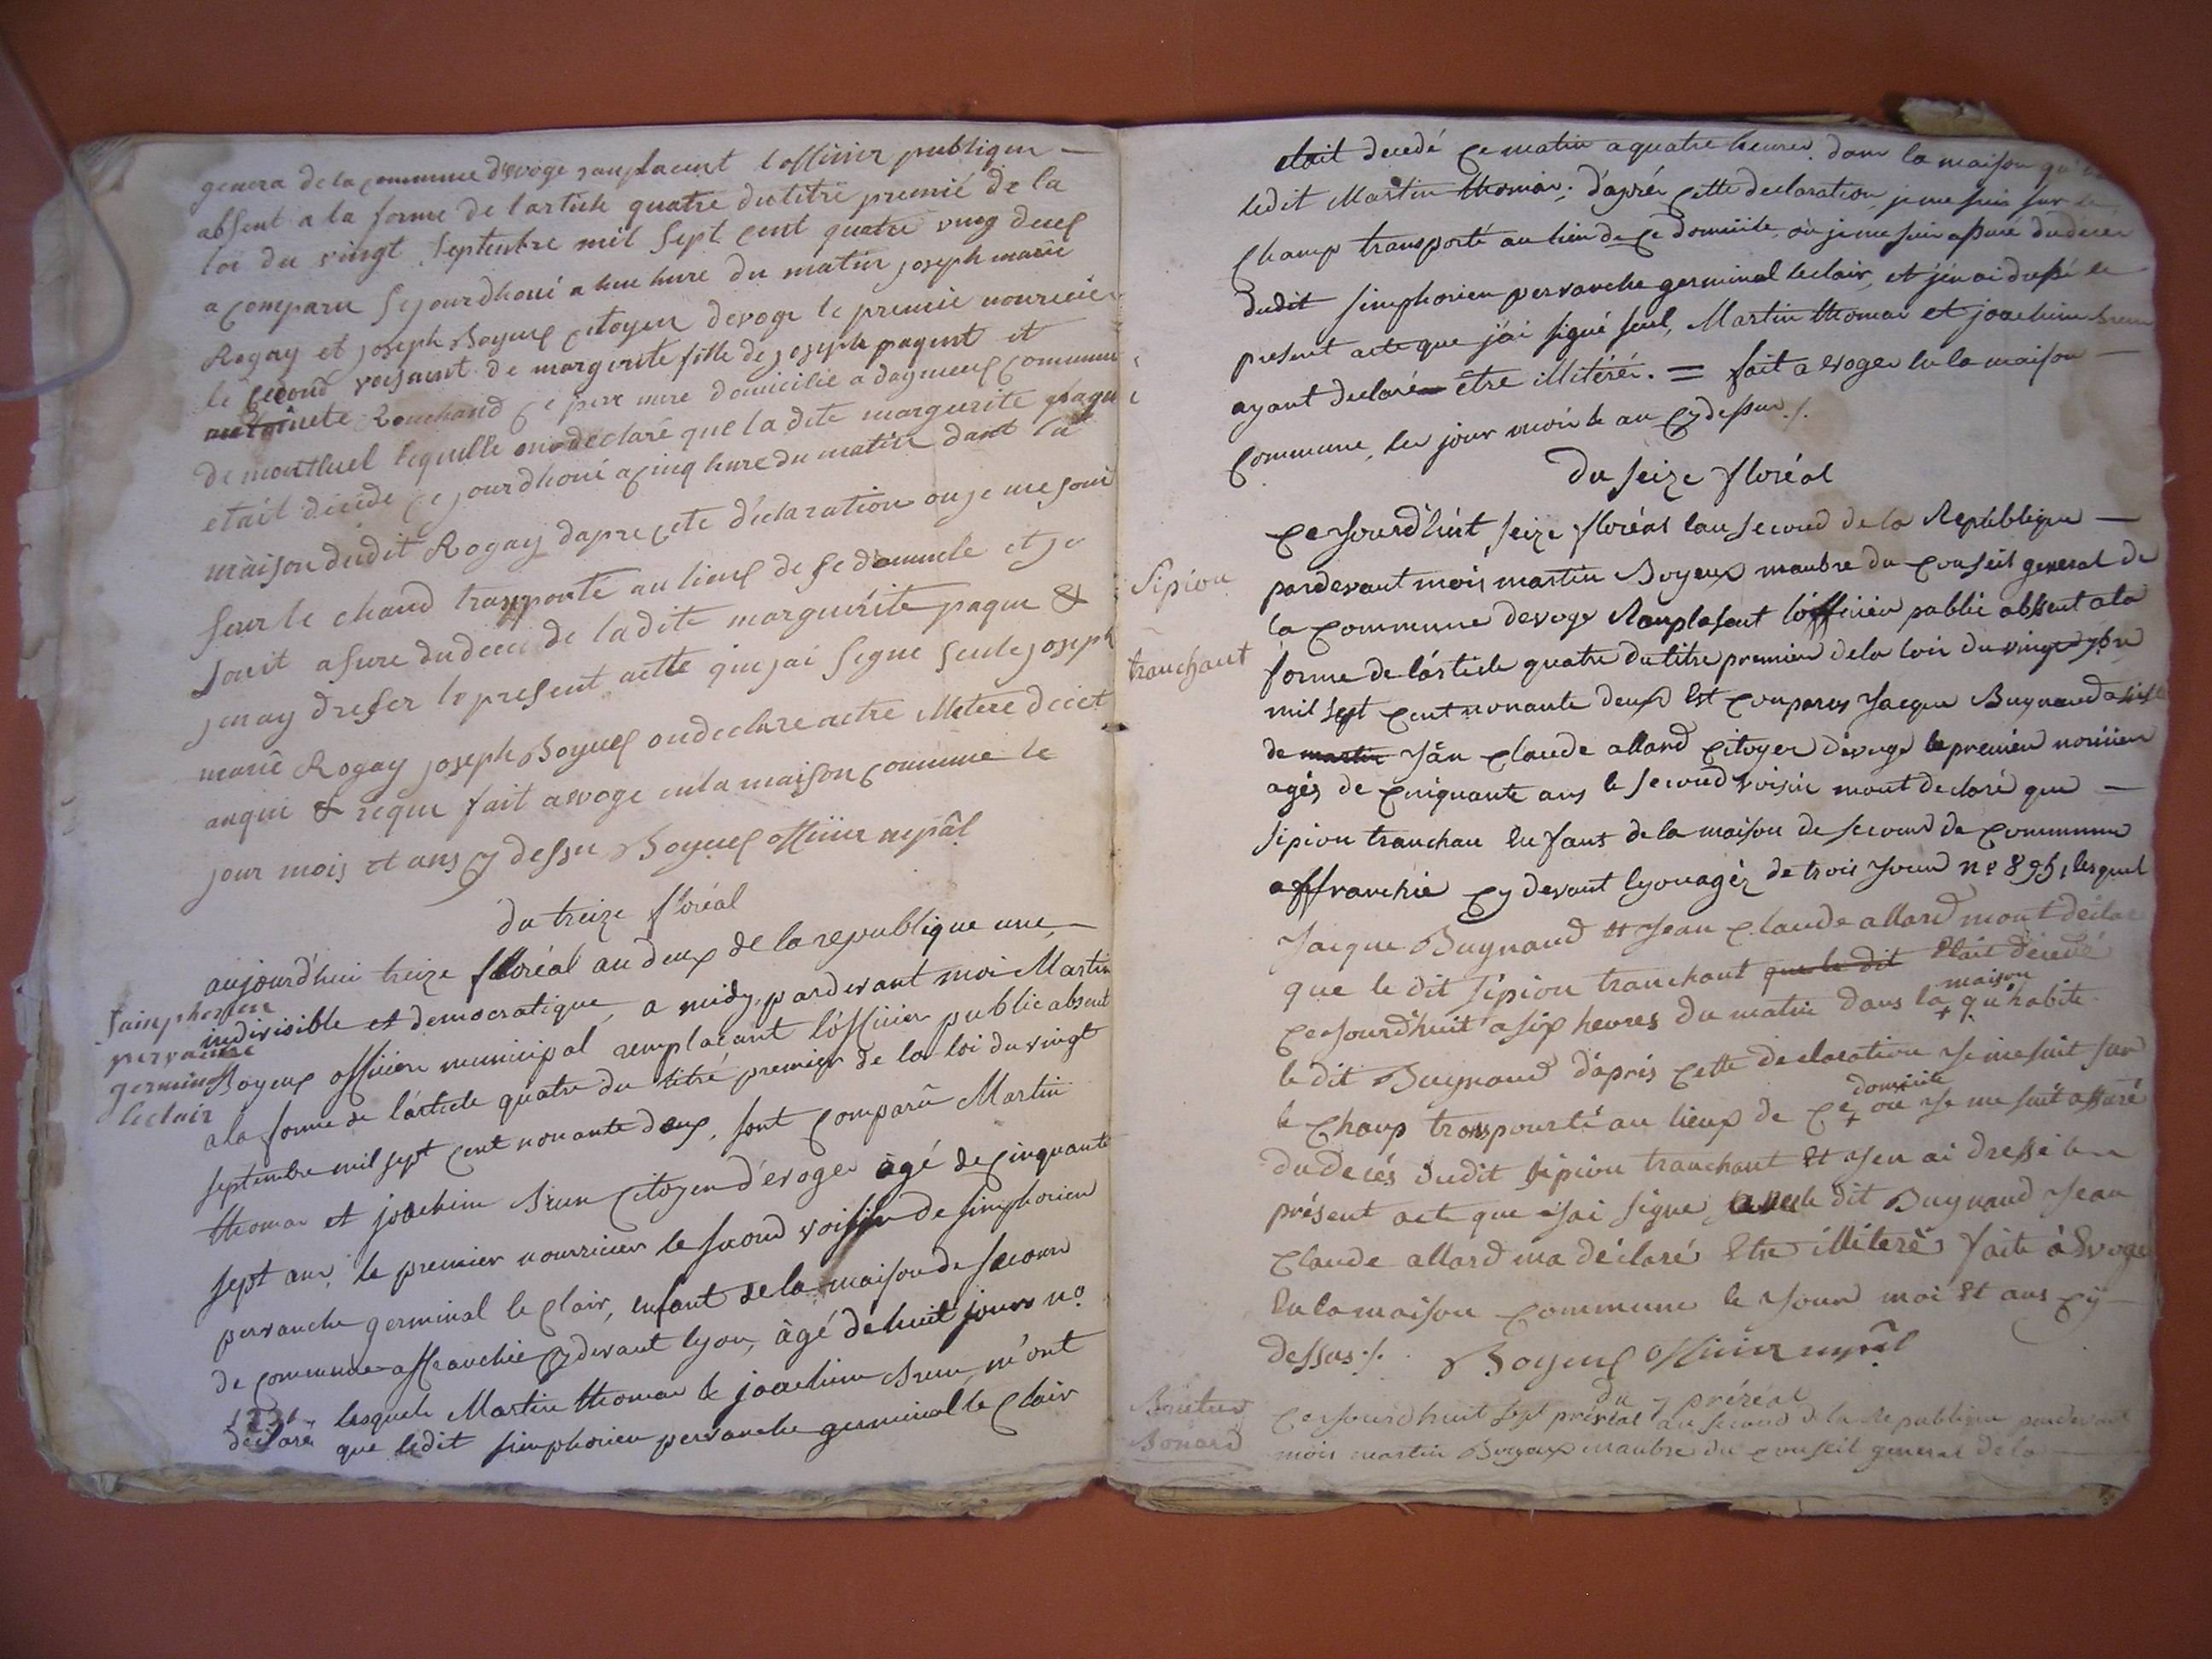 genera de la commune devoge ranplacent lofficier publique —
absent a la forme de larticle quatre du titre premié de la
loi du vingt septenbre mil sept cent quatre ving deuf
a comparu sejourdhoui a hun hure du matin joseph marie
Rogay et joseph Boyeuf citoyen devoge le premie nouricier
le cecond voisaint de margerite fille de joseph paquet et
antoinete Rouchand ce pere mere domicilie a dagneuf commune
de montluel lequelle on declaré que la dite margurite paque
etait décéde ce jourdhoui a cinq hure du matin dant la
maison dudit Rogay dapre cete déclaration ou je me soui
sur le chand transporté au lieuf de se domicile et je
souit asure du deces de ladite marguérite paque &
jenay dreser le present actte que jai signe seule joseph
marie Rogay joseph Boyeuf on declare aetre illetere decet
anquí & reque fait a evoge en la maison commune le
jour mois et ans cy dessu Boyeuf officier nepâl
du treize floréal
aujourd'hui treize floréal an deux de la republique une, —
indivisible et democratique, a midy, pardevant moi Martin
Sainphorien
pervanche
germinal
leclair
Boyeux officier municipal remplaçant l'officier public absent
a la forme de l'article quatre du titre premier de la loi du vingt
septembre mil sept cent nonante deux, sont comparû Martin
thomas et joachim Brun citoyen d'evoge agé de cinquante
sept ans, le premier nourricier le second voisin de simphorien
pervanche germinal le clair, enfant de la maison de secours
de commune affranchie cy devant lyon, âgé de huit jours no.
lesquels Martin thomas & joachim Brun, m'ont
déclaré que ledit simphorien pervanche germinal le clair
etait decedé ce matin a quatre heures dans la maison
ledit Martin thomas; d'aprés cette declaration, je me suis sur le
champ transporté au lieu de ce domicile, où je me suis assuré du décés
dudit simphorien pervanche germinal leclair, et j'en ai dressé le
present acte que j'ai signé seul, Martin thomas et joachim Brun
ayant declaré être illitérés. = fait a evoges en la maison —
commune, les jour mois & an cy dessus ./.
du seize floréal
Sipion
tranchant
Cejourd'huit, seize floréal lan second de la Republique —
pardevant mois martin Boyeux manbre du conseil general de
la commune devoge Ranplasant l'officier public absent a la
forme de l'article quatre du titre premier de la loix du vingt 7bre
mil sept cent nonante deux Est conparus Jacque Bugnand
de martin Jân claude allard citoyer devoge le premier norisier
agés de cinquante ans le second voisin mont declaré que —
sipion tranchan Enfant de la maison de secours de commune
affranchie cy devant lyon agéz de trois jours n° 895, lesquel
Jacque Bugnand et Jean claude allard mont déclaré
que le dit sipion tranchant que le dit Etait décédé
cejourd'huit a six heures du matin dans la + maison qu'habite
le dit Bugnand d'aprés cette declaration je me suit sur
le champ transpourté au lieux de ce + domicile ou je me suit assuré
du decés dudit sipion tranchant Et j'en ai dressé le
présent acte que j'ai signé, le dit Bugnand Jean
claude allard ma déclaré Etre illiteré fait à Evoge
En la maison commune le jour moi Et ans cy —
dessus ./. Boyeuf officier mpâl
Brutus
Bonard
du 7 préréal
Cejourdhuit sept préréal an second de la Republique pardevant
mois martin Boyeux manbre du conseil general de la —